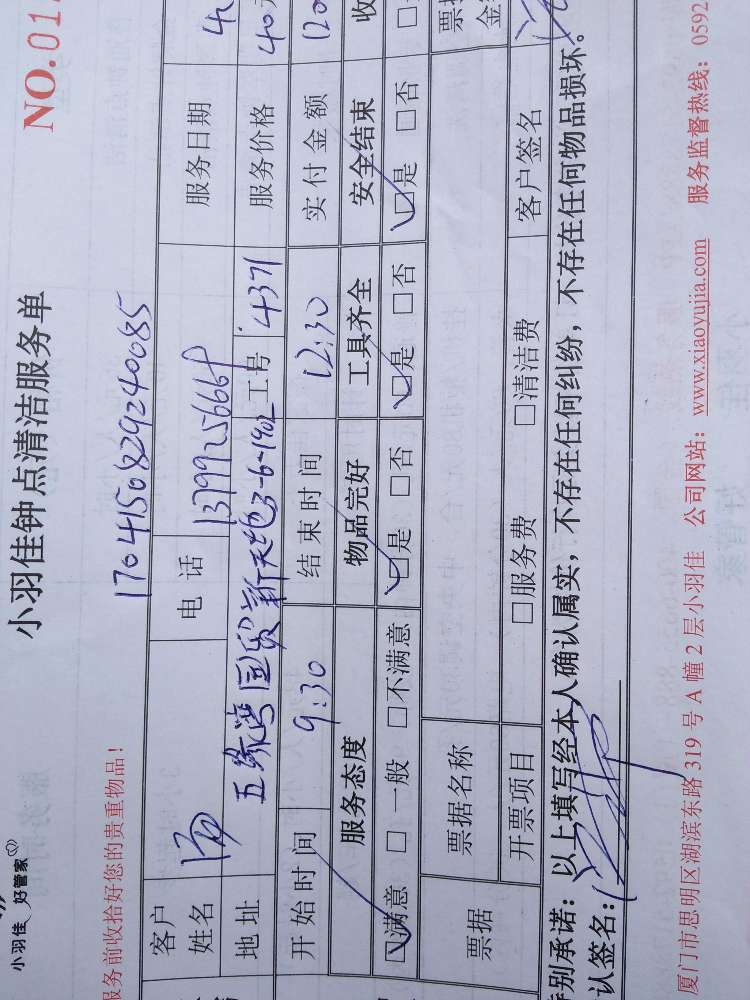 小羽佳 好管家
小羽佳钟点清洁服务单
NO.01
服务前收拾好您的贵重物品!
1704150829240085
客户姓名
电话 13799256668
服务日期
地址 五缘湾国贸新天地3-6-1902
工号 4371
服务价格 40元
开始时间 9:30
结束时间 12:30
实付金额 120
服务态度 物品完好 工具齐全 安全结束 收
☑满意 □一般 □不满意 ☑是 □否 ☑是 □否 ☑是 □否
票据 票据名称
票据金额
开票项目 □服务费 □清洁费 客户签名
特别承诺:以上填写经本人确认属实,不存在任何纠纷,不存在任何物品损坏。
认签名:
厦门市思明区湖滨东路319号A幢2层小羽佳 公司网站:www.xiaoyujia.com 服务监督热线:0592